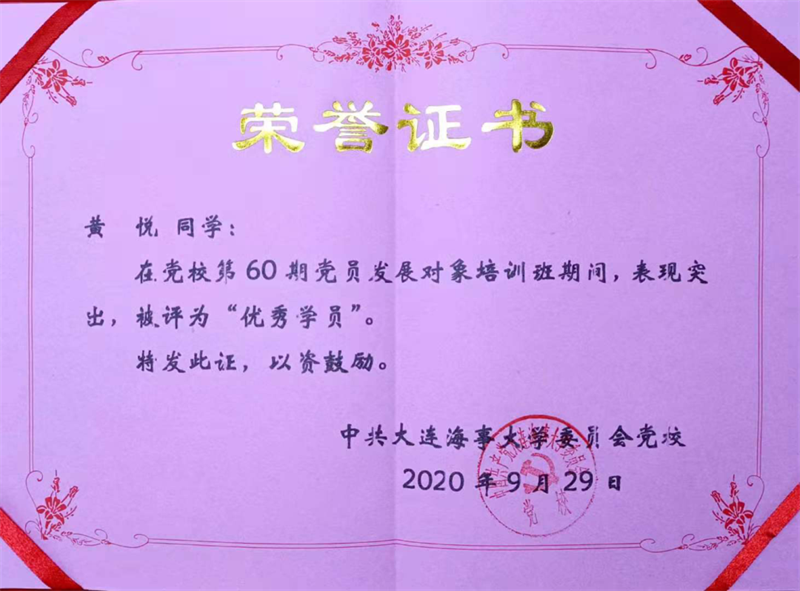 荣誉证书
黄 悦 同学：
在党校第60期党员发展对象培训班期间，表现突
出，被评为“优秀学员”。
特发此证，以资鼓励。
中共大连海事大学委员会党校
2020年9月29日
党校